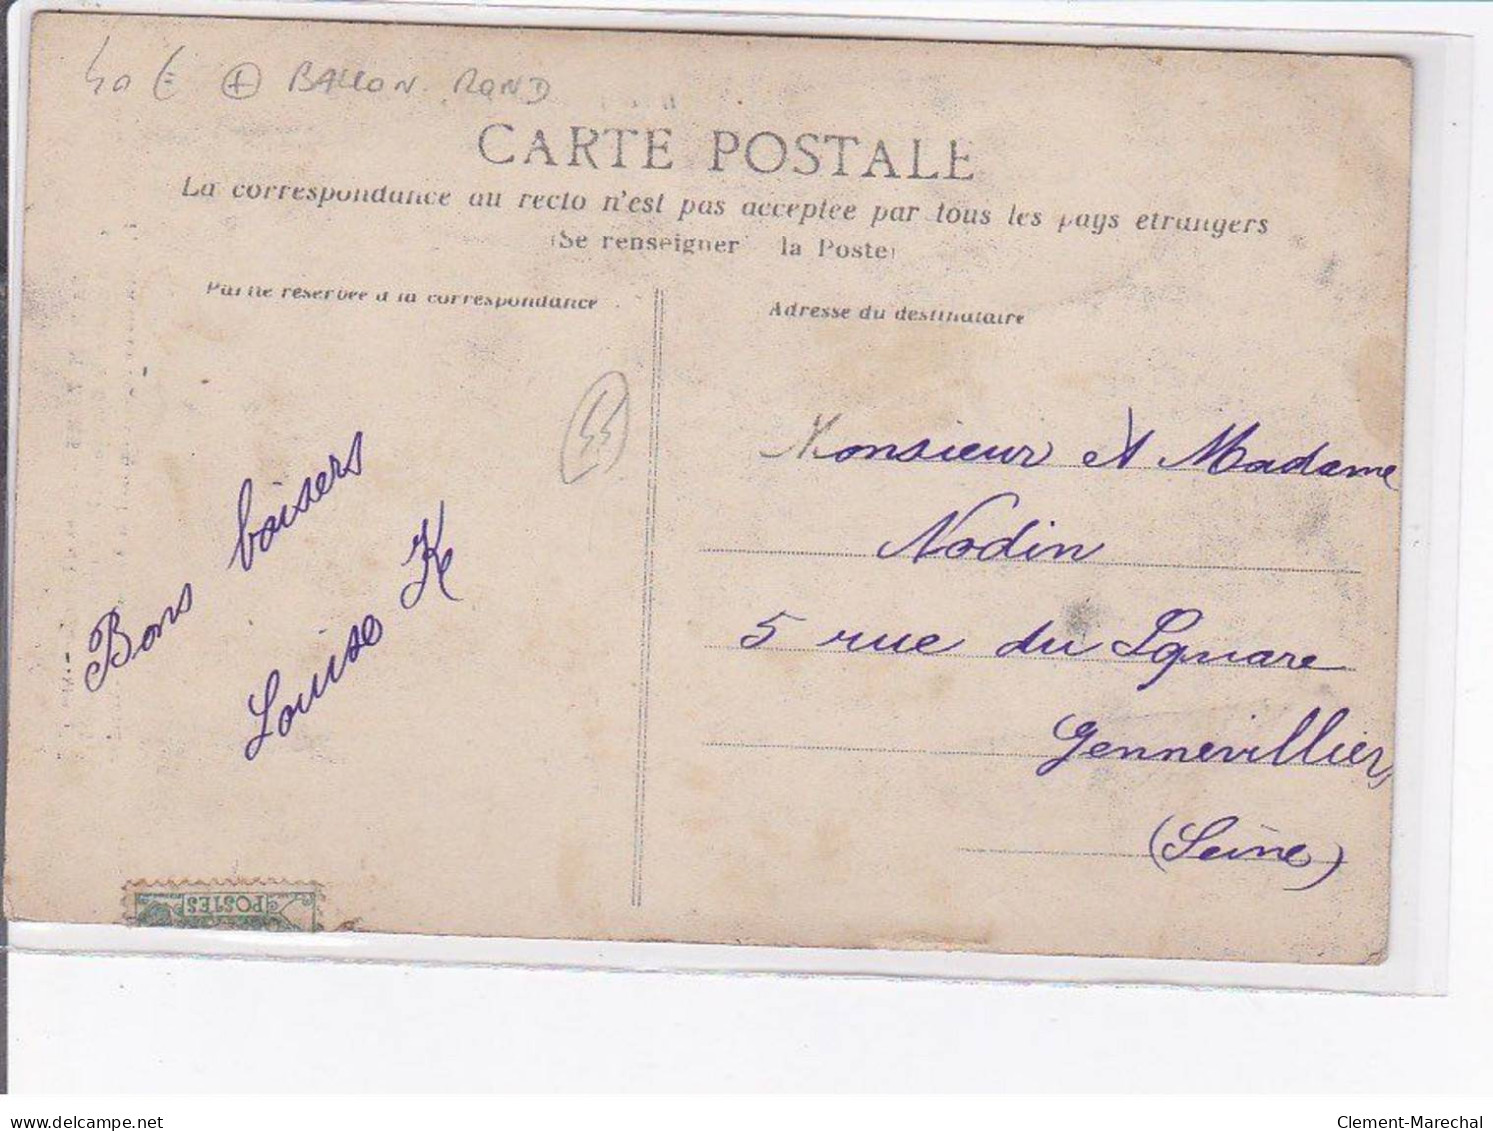 40 € + BALLON ROND
CARTE POSTALE
La correspondance au recto n'est pas acceptée par tous les pays étrangers
(Se renseigner la Poste)
Partie réservée à la correspondance
Adresse du destinataire
Bons baisers
Louise K
Monsieur et Madame
Nodin
5 rue du Square
Gennevilliers
(Seine)
POSTES
delcampe.net
Clement-Marechal